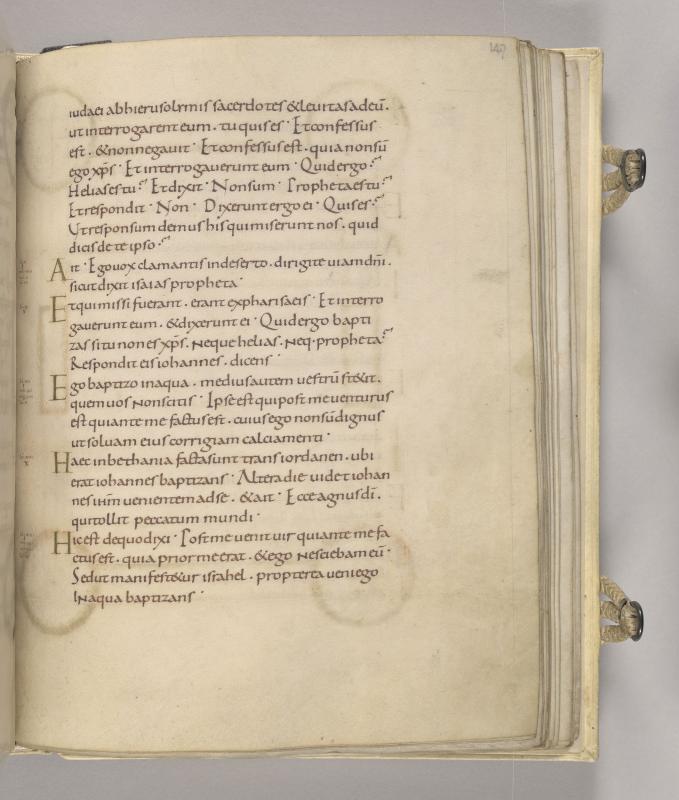 147
iudaei abhierusolymis sacerdotes &leuitasadeū.
utinterrogarenteum. tuquises· Etconfessus
est. &nonnegauit· Etconfessusest. quianonsū
egoxp̄s· Etinterrogauerunteum· Quidergo·
Heliasestu· Etdixit· Nonsum· Prophetaestu·
Etrespondit· Non· Dixeruntergoei· Quises·
Utresponsum demushisquimiseruntnos. quid
dicisdeteipso·
Ait· Egouoxclamantis indeserto. dirigiteuiamdn̄i.
sicutdixit isaiaspropheta·
Etquimissi fuerant. erant expharisaeis· Etinterro
gauerunteum. &dixerunt ei· Quidergo bapti
zas situ nones xp̄s. Neque helias. Neq·propheta·
Respondit eisiohannes. dicens·
Ego baptizo inaqua. mediusautem uestrū st&it.
quemuos Nonscitis· Ipseestquipost meuenturus
est quiante mefactusest. cuiusego nonsūdignus
utsoluam eius corrigiam calciamenti·
Haec inbethania factasunt transiordanen. ubi
erat iohannesbaptizans· Alteradie uidetiohan
nesih̄m uenientemadse. &ait· Ecceagnusdī.
quitollit peccatum mundi·
Hicest dequodixi· Postmeuenit uir quiante mefa
ctusest. quia priormeerat. &ego Nesciebameū·
Sedut manifest&ur israhel. propterea ueniego
INaqua baptizans·